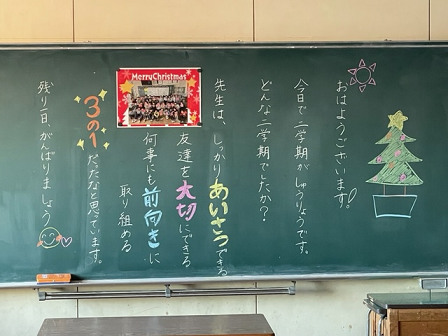 おはようございます!
今日で二学期がしゅうりょうです。
どんな二学期でしたか?
先生は、しっかりあいさつできる
友達を大切にできる
何事にも前向きに
取り組める
3の1だなと思ています。
残り一日がんばりましょう
MerryChristmas